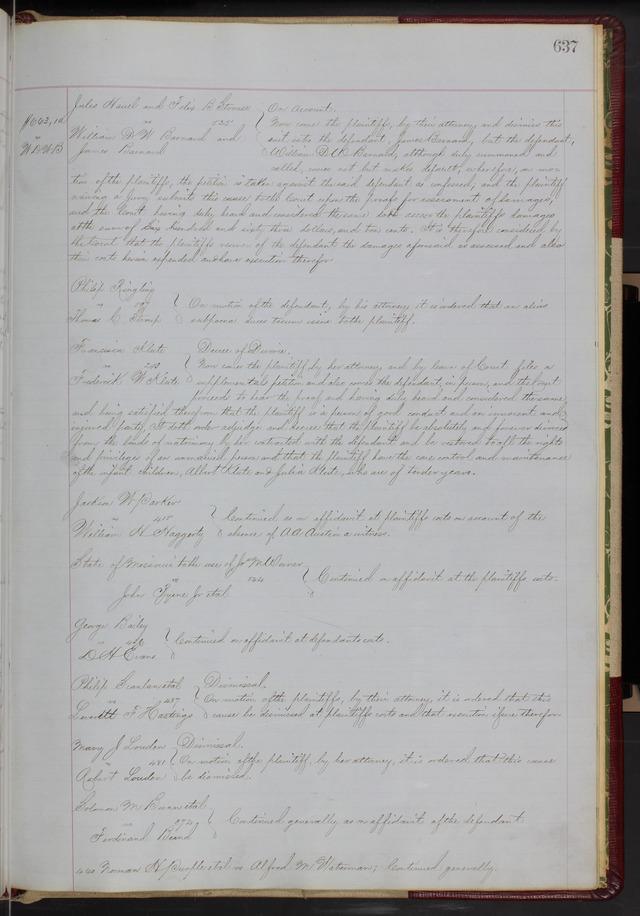 637
Jules Hauel and Felix B. Strouse } On Account.
$663,10 vs 535 } Now come the plaintiffs, by their attorney, and dismiss this
William D. W. Barnard and suit as to the defendant, James Barnard, but the defendant,
W D W B James Barnard William D. W. Barnard, although duly summoned and
called, comes not but makes default, wherefore, on mo-
tion of the plaintiffs, the petition is taken against the said defendant as confessed, and the plaintiffs
waiving a jury submit this cause to the Court upon the proofs for assessment of damages,
and the Court having duly heard and considered the same doth assess the plaintiffs damages
at the sum of Six hundred and sixty three dollars, and ten cents. It is therefore considered by
the Court that the plaintiffs recover of the defendant the damages aforesaid as assessed and also
their costs herein expended and have execution therefor
Philip Ringling
vs } On motion of the defendant, by his attorney, it is ordered that an alias
Thomas C. subpoena duces tecum issue to the plaintiff.
Francisca Klute } Decree of Divorce.
vs 243 } Now comes the plaintiff by her attorney, and by leave of Court files a
Frederick W. Klute supplemental petition and also comes the defendant, in person, and the Court
proceeds to hear the proof and having duly heard and considered the same,
and being satisfied therefrom that the plaintiff is a person of good conduct and an innocent and
injured party, It doth order adjudge and decree that the plaintiff be absolutely and forever divorced
from the bonds of matrimony by her contracted with the defendant and be restored to all the rights
and privileges of an unmarried person and that the plaintiff have the care control and maintenance
of the infant children, Albert Klute and Julia Klute, who are of tender years.
Jackson W. Barker
vs 450 } Continued as on affidavit at plaintiffs costs on account of the
William H. Haggerty absence of A A Austin a witness.
State of Missouri to the use of
vs 124 } Continued on affidavit at the plaintiffs costs.
John Jr et al
George Bailey
vs } Continued on affidavit at defendants costs.
D. H. Evans
Philip Scanlan et al } Dismissal.
vs 457 } On motion of the plaintiffs, by their attorney, it is ordered that this
F. Hastings cause be dismissed at plaintiffs costs and that execution issue therefor
Mary J. Louden } Dismissal.
vs 481 } On motion of the plaintiff, by her attorney, it is ordered that this cause
Robert Louden be dismissed.
Solomon M et al
vs } Continued generally as on affidavit of the defendant.
Ferdinand Beard
440 Norman H. Purple et al vs Alfred M. Waterman; Continued generally.